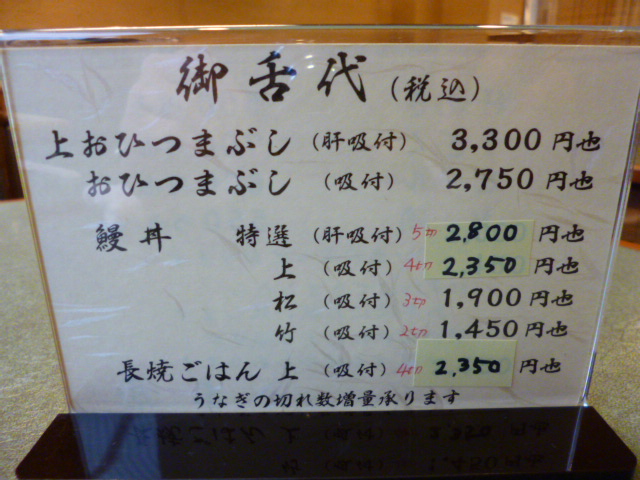 御舌代(税込)
上おひつまぶし(肝吸付) 3,300円也
おひつまぶし(吸付) 2,750円也
鰻丼 特選(肝吸付) 5切 2,800円也
上(吸付) 4切 2,350円也
松(吸付) 3切 1,900円也
竹(吸付) 2切 1,450円也
長焼ごはん 上(吸付) 4切 2,350円也
うなぎの切れ数増量承ります